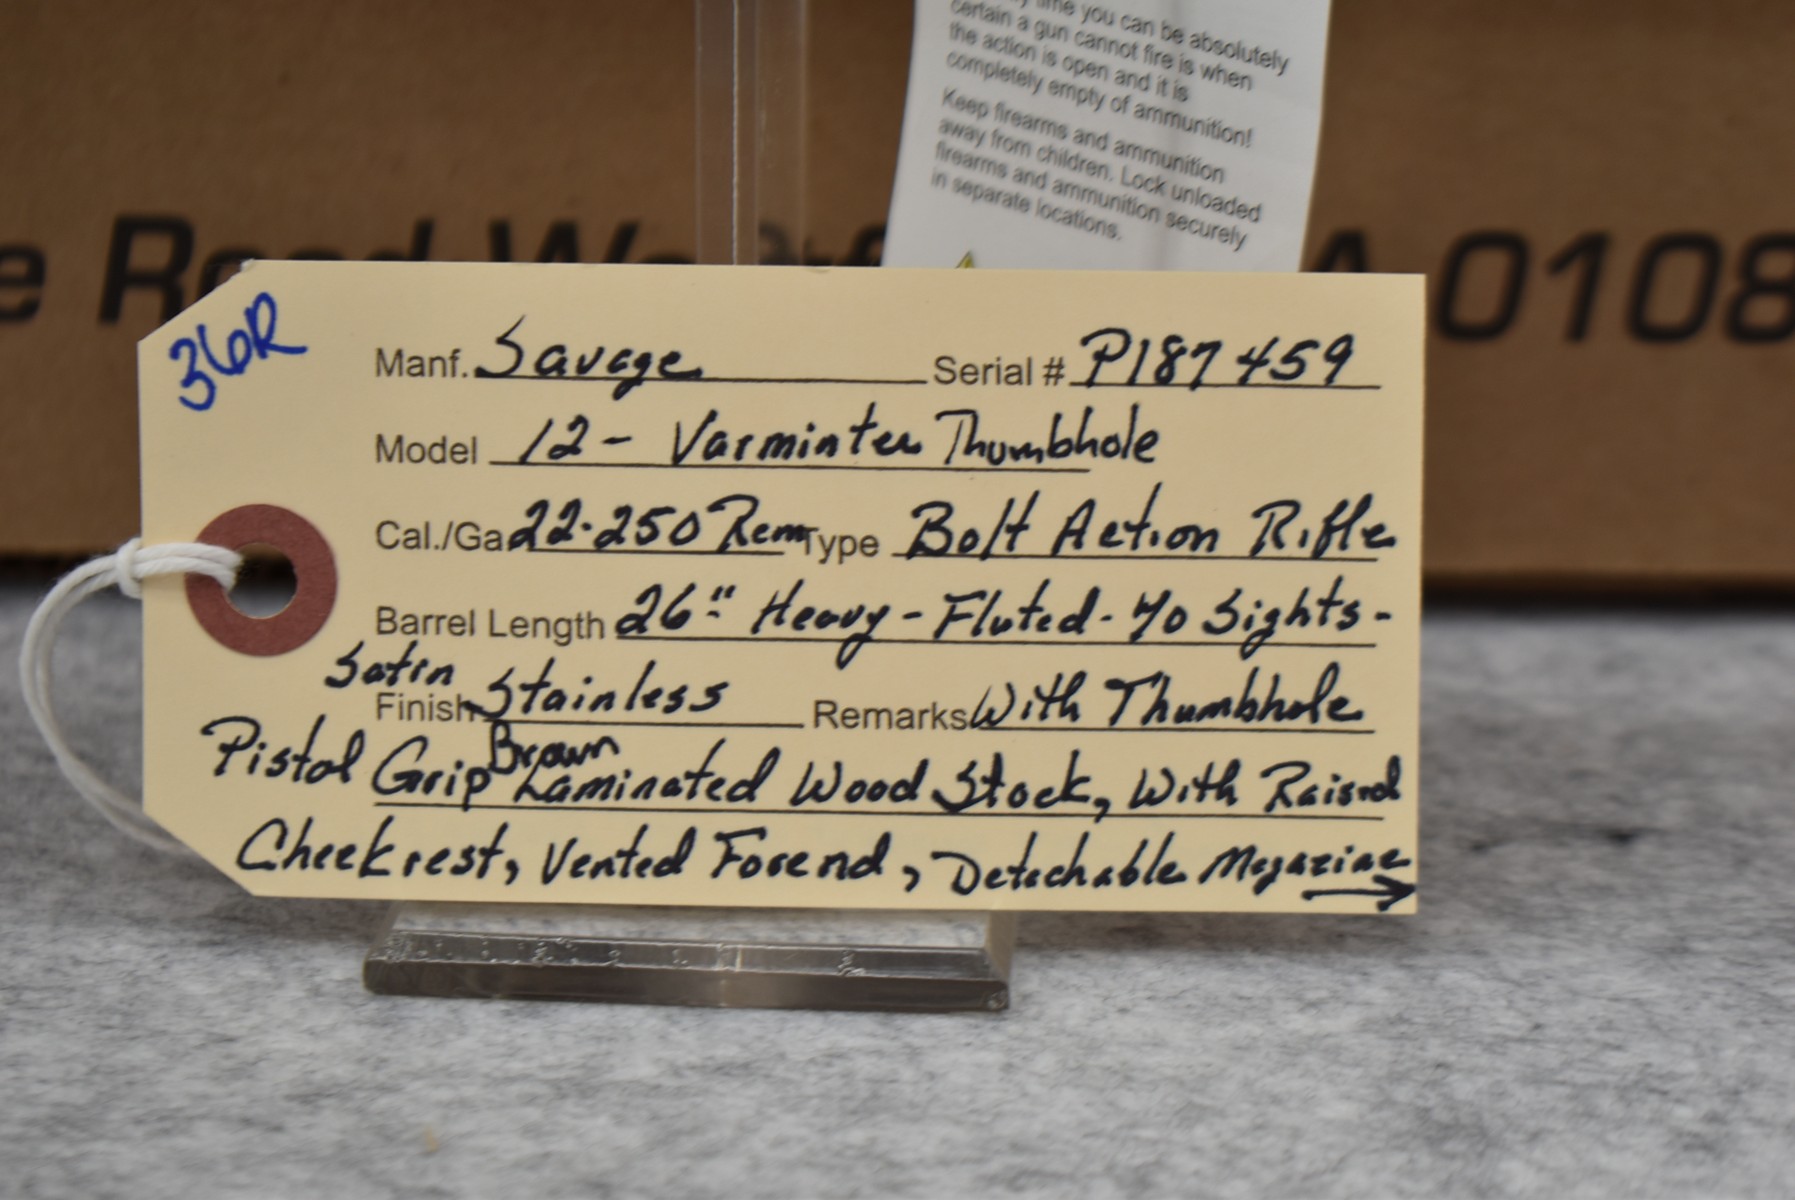 time you can be absolutely
certain a gun cannot fire is when
the action is open and it is
completely empty of ammunition!
Keep firearms and ammunition
away from children. Lock unloaded
firearms and ammunition securely
in separate locations.
e Road 0108
36R
Manf. Savage Serial # P187459
Model 12 - Varminter Thumbhole
Cal./Ga 22-250 Rem Type Bolt Action Rifle
Barrel Length 26" Heavy - Fluted - No Sights -
Satin
Finish Stainless Remarks With Thumbhole
Pistol Grip Brown Laminated Wood Stock, With Raised
Cheekrest, Vented Forend, Detachable Magazine →